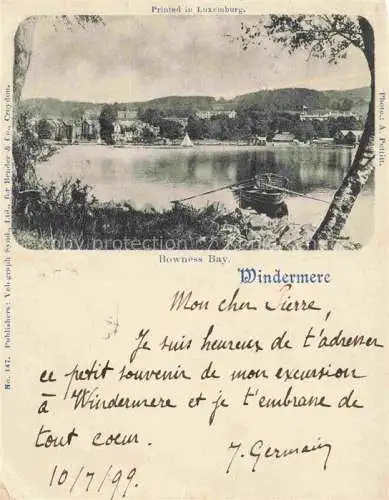 Printed in Luxemburg.
Photo.: A. Pettitt.
No. 147. Publishers: Velograph Synd. Ltd., for Bender & Co., Croydon.
Bowness Bay.
Windermere
Mon cher Pierre,
Je suis heureux de t'adresser
ce petit souvenir de mon excursion
à Windermere et je t'embrasse de
tout coeur.
J. Germain
10/7/99.